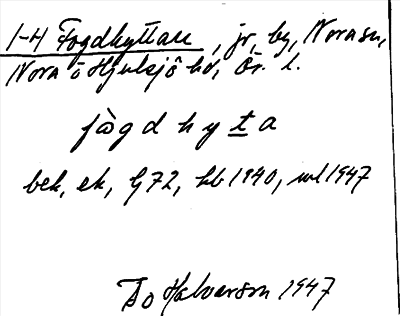 1-4 Fogdhyttan, jr, by, Nora sn,
Nora o Hjulsjö hd, Ör. l.
fògdhyta
bek, ek, G 72, hb 1940, wl 1947
Bo Halvarson 1947